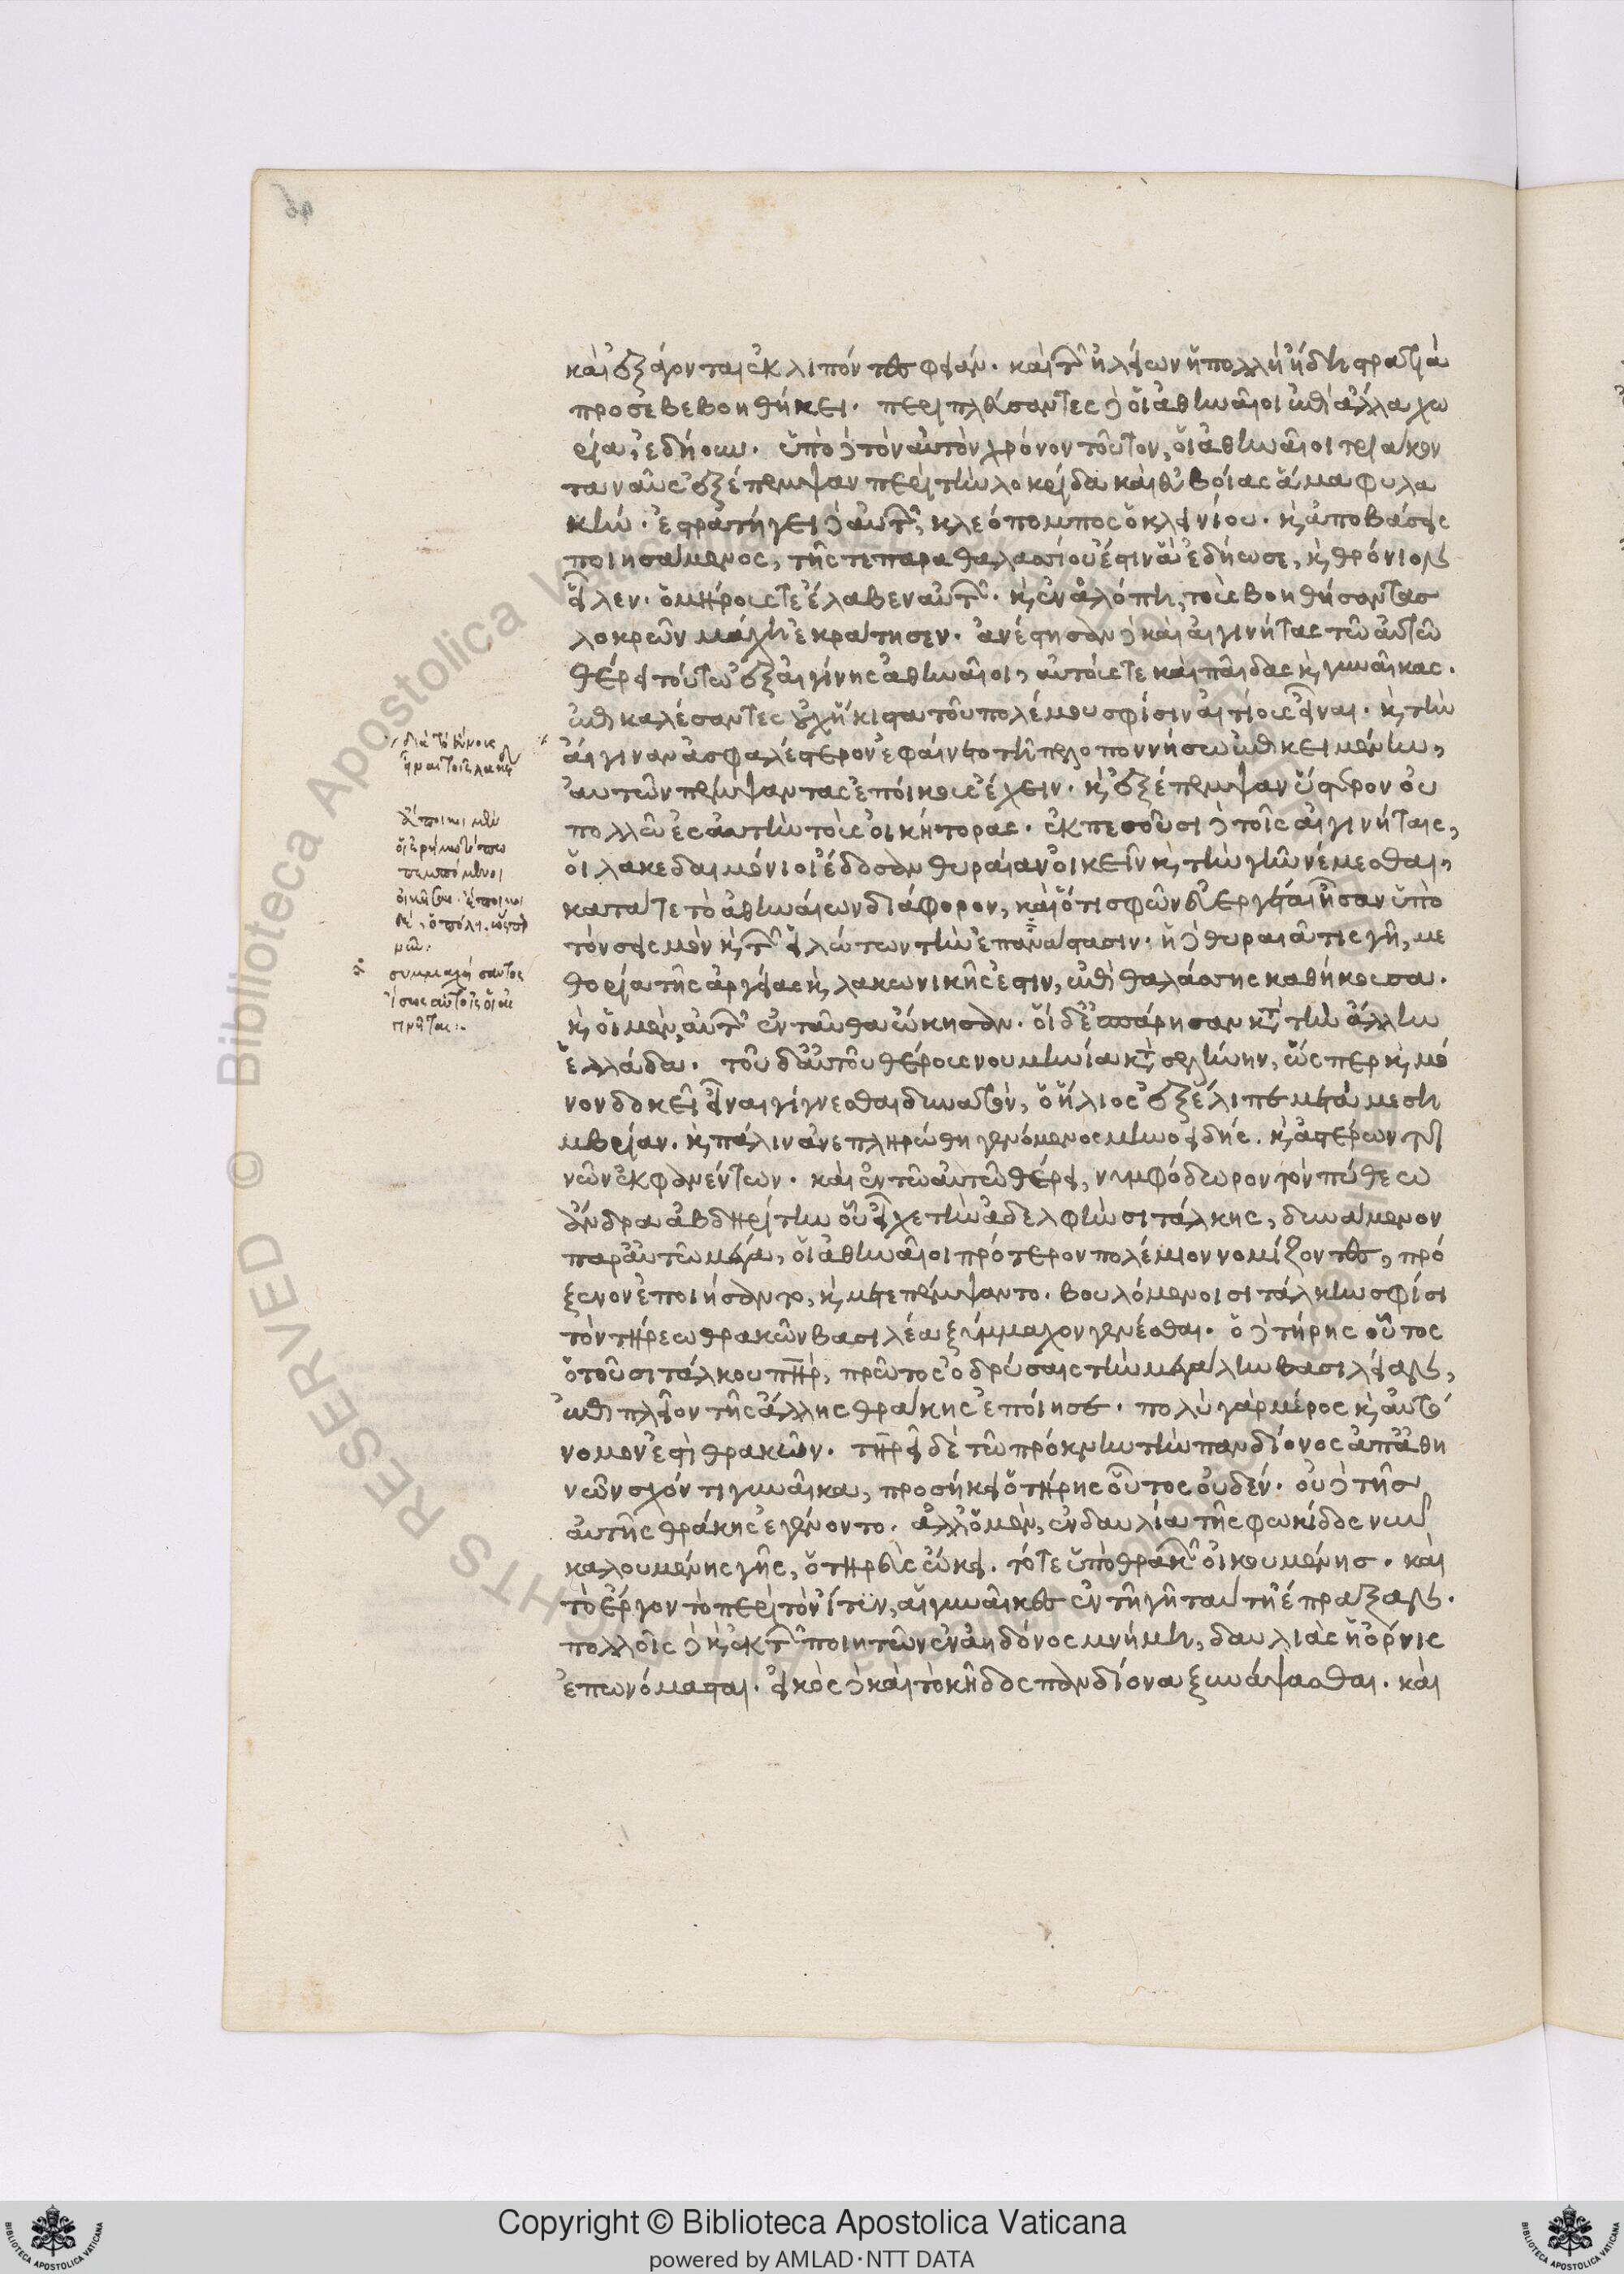 καὶ ἐξανάγονται ἐκλιπόντες φειάν. καὶ τῶν ἠλείων ἡ πολλὴ ἤδη στρατιὰ
προσεβεβοηθήκει. περιπλεύσαντες δὲ οἱ ἀθηναῖοι ἐπὶ ἄλλα χω
ρία, ἐδήουν. ὑπὸ δὲ τὸν αὐτὸν χρόνον τοῦτον, οἱ ἀθηναῖοι τριάκον
τα ναῦς ἐξέπεμψαν περὶ τὴν λοκρίδα καὶ εὐβοίας ἅμα φυλα
κήν. ἐστρατήγει δὲ αὐτῶν, κλεόπομπος ὁ κλεινίου. καὶ ἀποβάσεις
ποιησάμενος, τῆς τε παραθαλασσίου ἔστιν ἃ ἐδήωσε, καὶ θρόνιον
εἷλεν. ὁμήρους τε ἔλαβεν αὐτῶν. καὶ ἐν ἀλόπῃ, τοὺς βοηθήσαντας
λοκρῶν μάχῃ ἐκράτησεν. ἀνέστησαν δὲ καὶ αἰγινήτας τῷ αὐτῷ
θέρει τούτῳ ἐξ αἰγίνης ἀθηναῖοι, αὐτούς τε καὶ παῖδας καὶ γυναῖκας.
ἐπικαλέσαντες οὐχ ἥκιστα τοῦ πολέμου σφίσιν αἰτίους εἶναι. καὶ τὴν
αἴγιναν ἀσφαλέστερον ἐφαίνετο τῇ πελοποννήσῳ ἐπικειμένην,
αὐτῶν πέμψαντας ἐποίκους ἔχειν. καὶ ἐξέπεμψαν ὕστερον οὐ
πολλῷ ἐς αὐτὴν τοὺς οἰκήτορας. ἐκπεσοῦσι δὲ τοῖς αἰγινήταις,
οἱ λακεδαιμόνιοι ἔδοσαν θυραίαν οἰκεῖν καὶ τὴν γῆν νέμεσθαι,
κατά τε τὸ ἀθηναίων διάφορον, καὶ ὅτι σφῶν εὐεργέται ἦσαν ὑπὸ
τὸν σεισμὸν καὶ τῶν εἱλώτων τὴν ἐπανάστασιν. ἡ δὲ θυραιᾶτις γῆ, με
θορία τῆς ἀργείας καὶ λακωνικῆς ἐστιν, ἐπὶ θαλάσσης καθήκουσα.
καὶ οἱ μὲν αὐτῶν ἐνταῦθα ᾤκησαν. οἱ δὲ ἐσπάρησαν κατὰ τὴν ἄλλην
ἑλλάδα. τοῦ δ' αὐτοῦ θέρους νουμηνίᾳ κατὰ σελήνην, ὥσπερ καὶ μό
νον δοκεῖ εἶναι γίγνεσθαι δυνατὸν, ὁ ἥλιος ἐξέλιπε μετὰ μεση
μβρίαν. καὶ πάλιν ἀνεπληρώθη γενόμενος μηνοειδής. καὶ ἀστέρων τι
νῶν ἐκφανέντων. καὶ ἐν τῷ αὐτῷ θέρει, νυμφόδωρον τὸν πύθεω
ἄνδρα ἀβδηρίτην οὗ εἶχε τὴν ἀδελφὴν σιτάλκης, δυνάμενον
παρ' αὐτῷ μέγα, οἱ ἀθηναῖοι πρότερον πολέμιον νομίζοντες, πρό
ξενον ἐποιήσαντο, καὶ μετεπέμψαντο. βουλόμενοι σιτάλκην σφίσι
τὸν τήρεω θρακῶν βασιλέα ξύμμαχον γενέσθαι. ὁ δὲ τήρης οὗτος
ὁ τοῦ σιτάλκου πατὴρ, πρῶτος ὀδρύσαις τὴν μεγάλην βασιλείαν,
ἐπὶ πλεῖον τῆς ἄλλης θρᾴκης ἐποίησε. πολὺ γὰρ μέρος καὶ αὐτό
νομόν ἐστι θρακῶν. τηρεῖ δὲ τῷ πρόκνην τὴν πανδίονος ἀπ' ἀθη
νῶν σχόντι γυναῖκα, προσήκει ὁ τήρης οὗτος οὐδέν. οὐδὲ τῆς
αὐτῆς θρᾴκης ἐγένοντο. ἀλλ' ὁ μὲν, ἐν δαυλίᾳ τῆς φωκίδος νῦν
καλουμένης γῆς, ὁ τηρεὺς ᾤκει. τότε ὑπὸ θρακῶν οἰκουμένης. καὶ
τὸ ἔργον τὸ περὶ τὸν ἴτυν, αἱ γυναῖκες ἐν τῇ γῇ ταύτῃ ἔπραξαν.
πολλοῖς δὲ καὶ ἐκ τῶν ποιητῶν ἐν ἀηδόνος μνήμῃ, δαυλιὰς ἡ ὄρνις
ἐπωνόμασται. εἰκὸς δὲ καὶ τὸ κῆδος πανδίονα ξυνάψασθαι. καὶ
ἔποικοι μὲν
οἱ ἐρήμῳ τόπῳ
πεμπόμενοι
συμμαχήσαντος